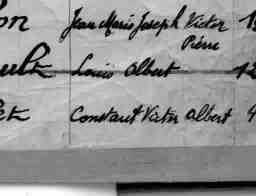 on Jean Marie Joseph Victor 1
Pierre
ult Louis Albert 12
et Constant Victor Albert 4